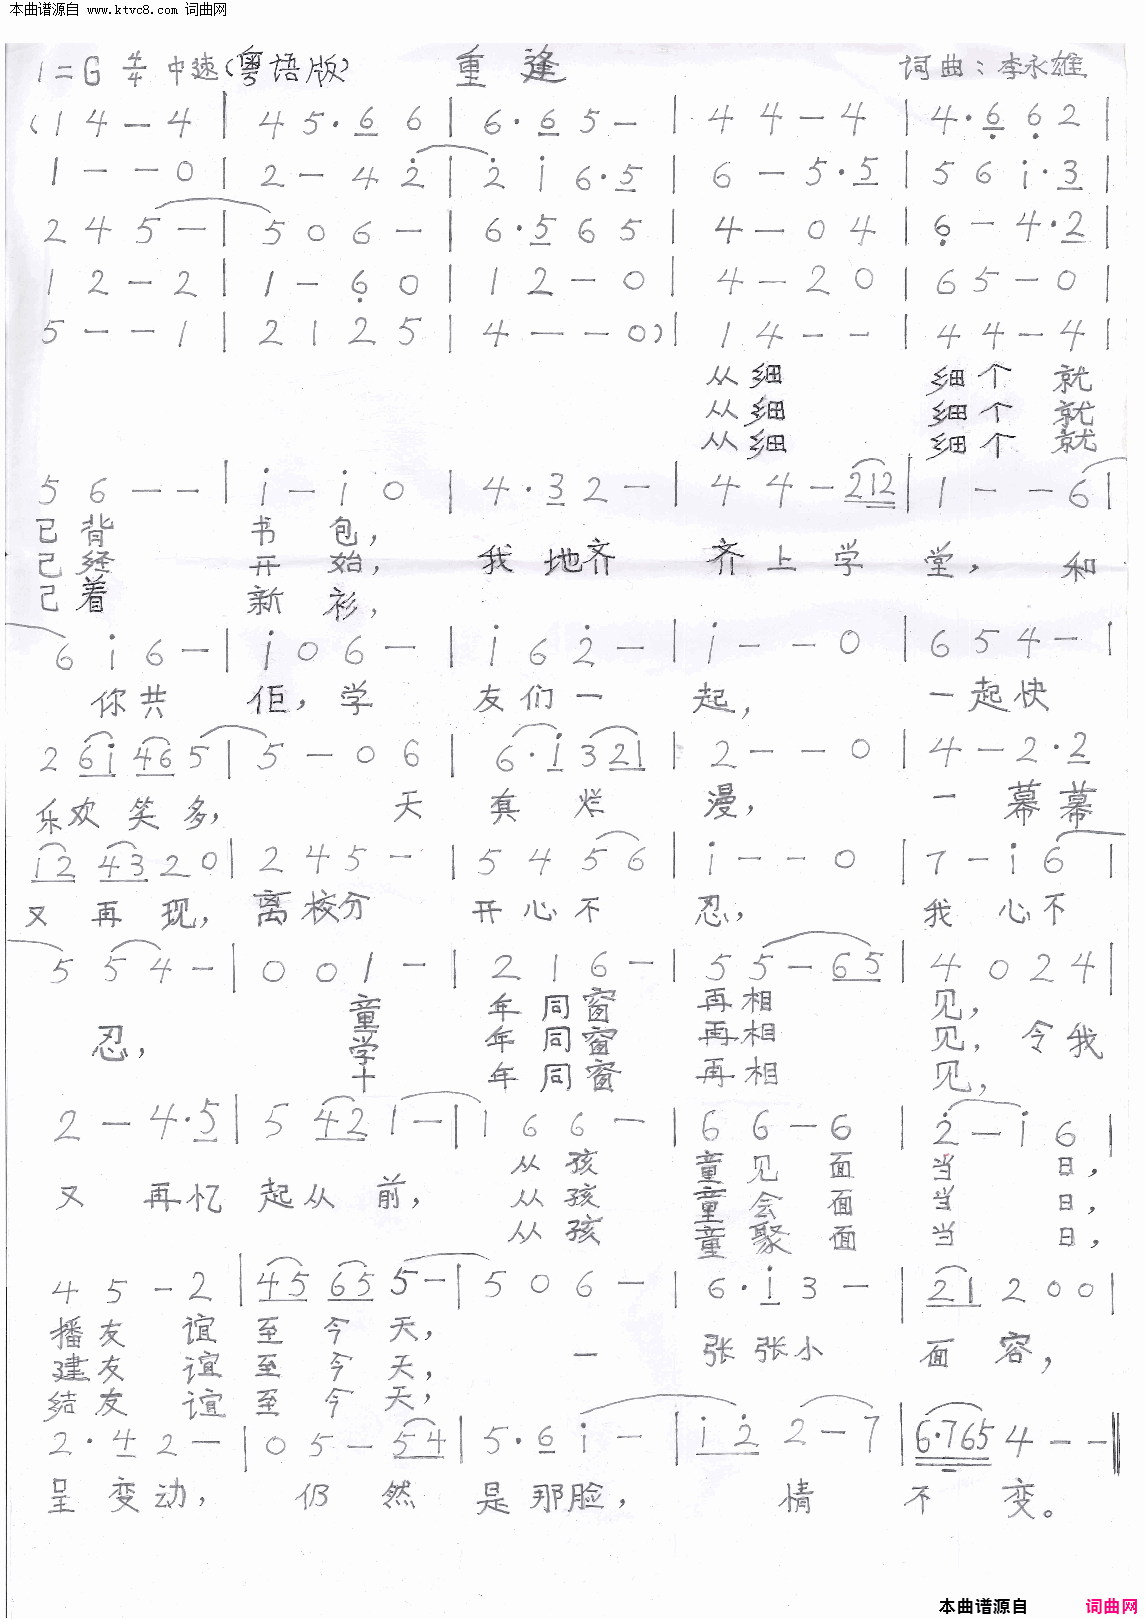 本曲谱源自 www.ktvc8.com 词曲网
1=G 4/4 中速(粤语版) 重逢 词曲:李永雄
(1 4 – 4 | 4 5·6 6 | 6·6 5 – | 4 4 – 4 | 4·6 6 2 |
1 – – 0 | 2 – 4 2 | 2 i 6·5 | 6 – 5·5 | 5 6 i·3 |
2 4 5 – | 5 0 6 – | 6·5 6 5 | 4 – 0 4 | 6 – 4·2 |
1 2 – 2 | 1 – 6 0 | 1 2 – 0 | 4 – 2 0 | 6 5 – 0 |
5 – – 1 | 2 1 2 5 | 4 – – 0) | 1 4 – – | 4 4 – 4
从细 细个 就
从细 细个 就
从细 细个 就
5 6 – – | i – i 0 | 4·3 2 – | 4 4 – 212 | 1 – – 6 |
已背 书 包,
已经 开 始, 我地齐 齐上学 堂, 和
已着 新 衫,
6 i 6 – | i 0 6 – | i 6 2 – | i – – 0 | 6 5 4 – |
你共 佢,学 友们一 起, 一起快
2 6i 46 5 | 5 – 0 6 | 6·i 3 21 | 2 – – 0 | 4 – 2·2
乐欢 笑 多, 天 真 烂 漫, 一 幕幕
i2 43 2 0 | 2 4 5 – | 5 4 5 6 | i – – 0 | 7 – i 6 |
又 再 现, 离校分 开心不 忍, 我 心不
5 5 4 – | 0 0 1 – | 2 1 6 – | 5 5 – 65 | 4 0 2 4 |
童 年同窗 再相 见,
忍, 学 年同窗 再相 见, 令我
十 年同窗 再相 见,
2 – 4·5 | 5 42 1 – | 1 6 6 – | 6 6 – 6 | 2 – i 6 |
从孩 童见面 当 日,
又 再忆 起从 前, 从孩 童会面 当 日,
从孩 童聚面 当 日,
4 5 – 2 | 45 65 5 – | 5 0 6 – | 6·i 3 – | 21 2 0 0 |
播友 谊 至 今 天,
建友 谊 至 今 天, 一 张张小 面 容,
结友 谊 至 今 天,
2·4 2 – | 0 5 – 54 | 5·6 i – | i 2 2 – 7 | 6·765 4 – – ||
呈 变动, 仍 然 是那脸, 情 不 变。
本曲谱源自 词曲网